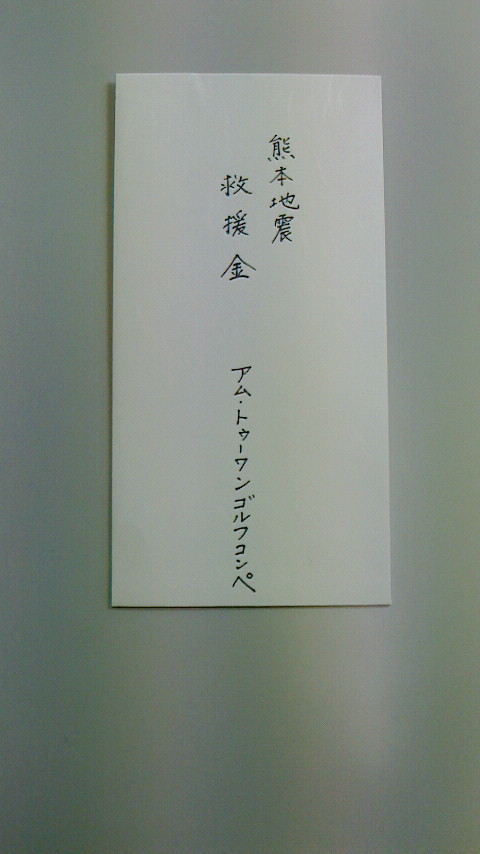 熊本地震
救援金
アム・トゥーワンゴルフコンペ